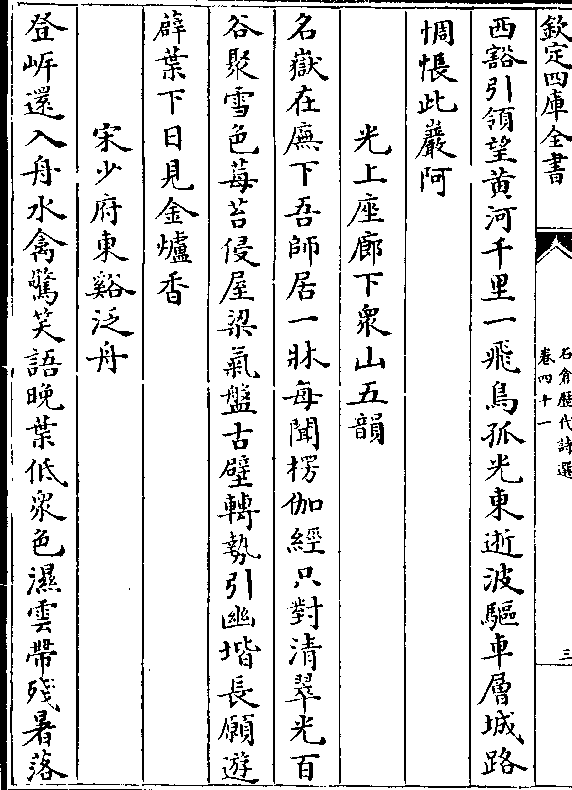 欽定四庫全書
石倉歷代詩選
卷四十一
三
西豁引領望黄河千里一飛鳥孤光東逝波驅車層城路
惆悵此巖阿
光上座廊下衆山五韻
名嶽在廡下吾師居一牀每聞楞伽經只對清翠光百
谷聚雪色莓苔侵屋梁氣盤古壁轉勢引幽堦長願遊
薜葉下日見金爐香
宋少府東谿泛舟
登岍還入舟水禽驚笑語晚葉低衆色濕雲帶殘暑落